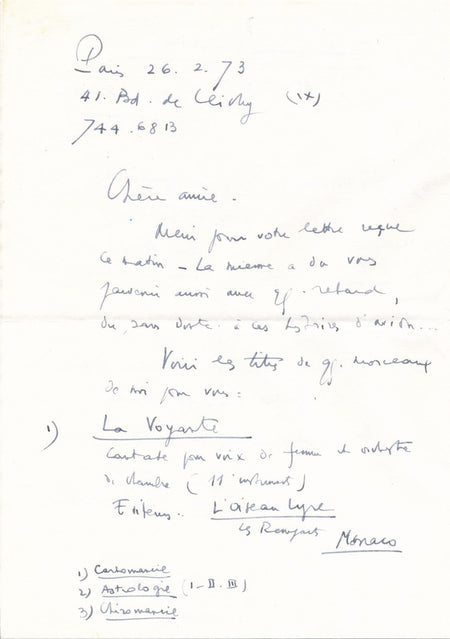 Paris 26.2.73
41. Bd. de Clichy (IX)
744.6813
Chère amie.
Merci pour votre lettre reçue
ce matin - La mienne a dû vous
parvenir aussi avec qq. retard,
dû, sans doute à ces histoires d'avion...
Voici les titres de qq. morceaux
de moi pour vous:
1) La Voyante
Cantate pour voix de femme et orchestre
de chambre (11 instruments)
Editeurs: L'Oiseau Lyre
Les Remparts
Monaco
1) Cartomancie
2) Astrologie (I-II-III)
3) Chiromancie